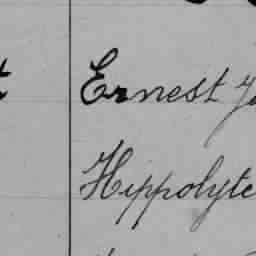 Ernest
Hippolyte